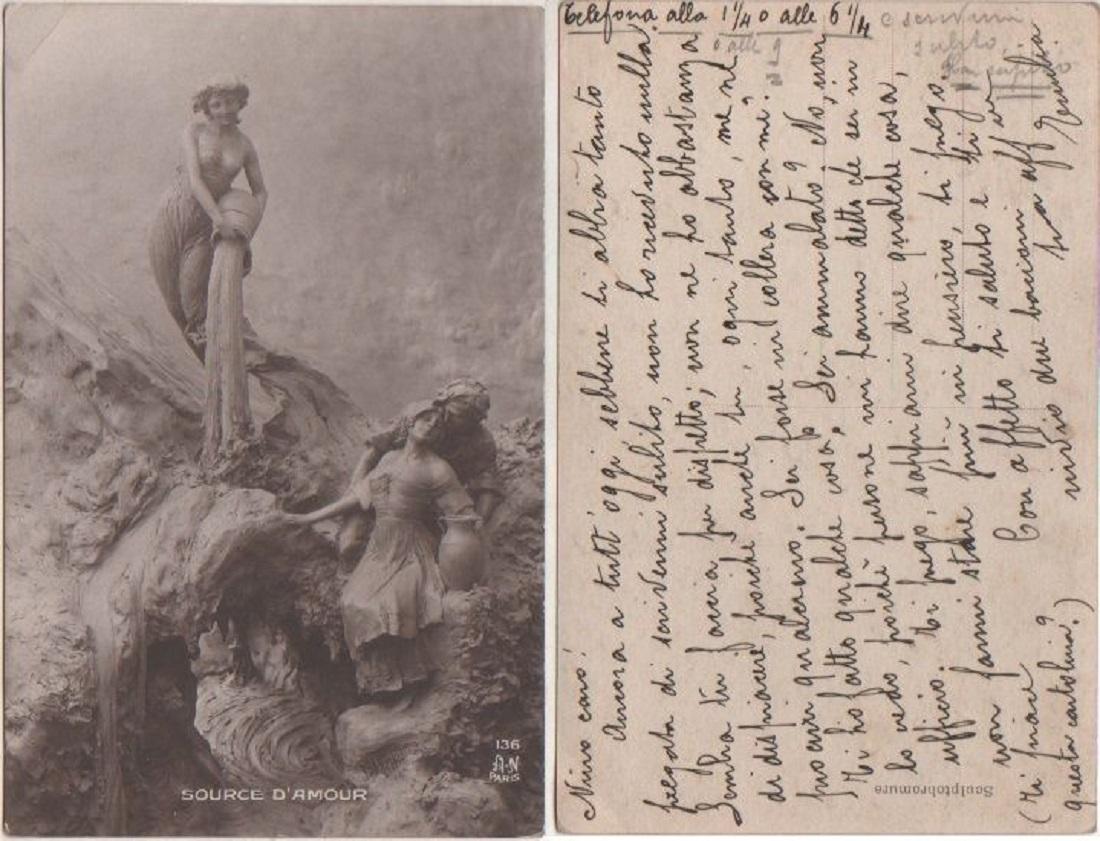 136
A·N
PARIS
SOURCE D'AMOUR
Telefona alla 1 1/4 o alle 6 1/4
o alle 9
e scrivimi
subito,
Nino caro!
Ancora a tutt'oggi sebbene ti abbia tanto
pregata di scrivermi subito, non ho ricevuto nulla.
Sembra tu faccia per dispetto; non ne ho abbastanza
di dispiaceri, perchè anche tu, ogni tanto, me ne
procuri qualcuno. Sei forse in collera con mè?
Ti ho fatto qualche cosa? Sei ammalato? No, non
lo credo, perchè persone mi hanno detto che sei in
ufficio. Ti prego, sappimi dire qualche cosa,
non farmi stare più in pensiero, ti prego
Con affetto ti saluto e ti
invio due bacioni tua aff
(Ti piace
questa cartolina?)
Sculptobromure